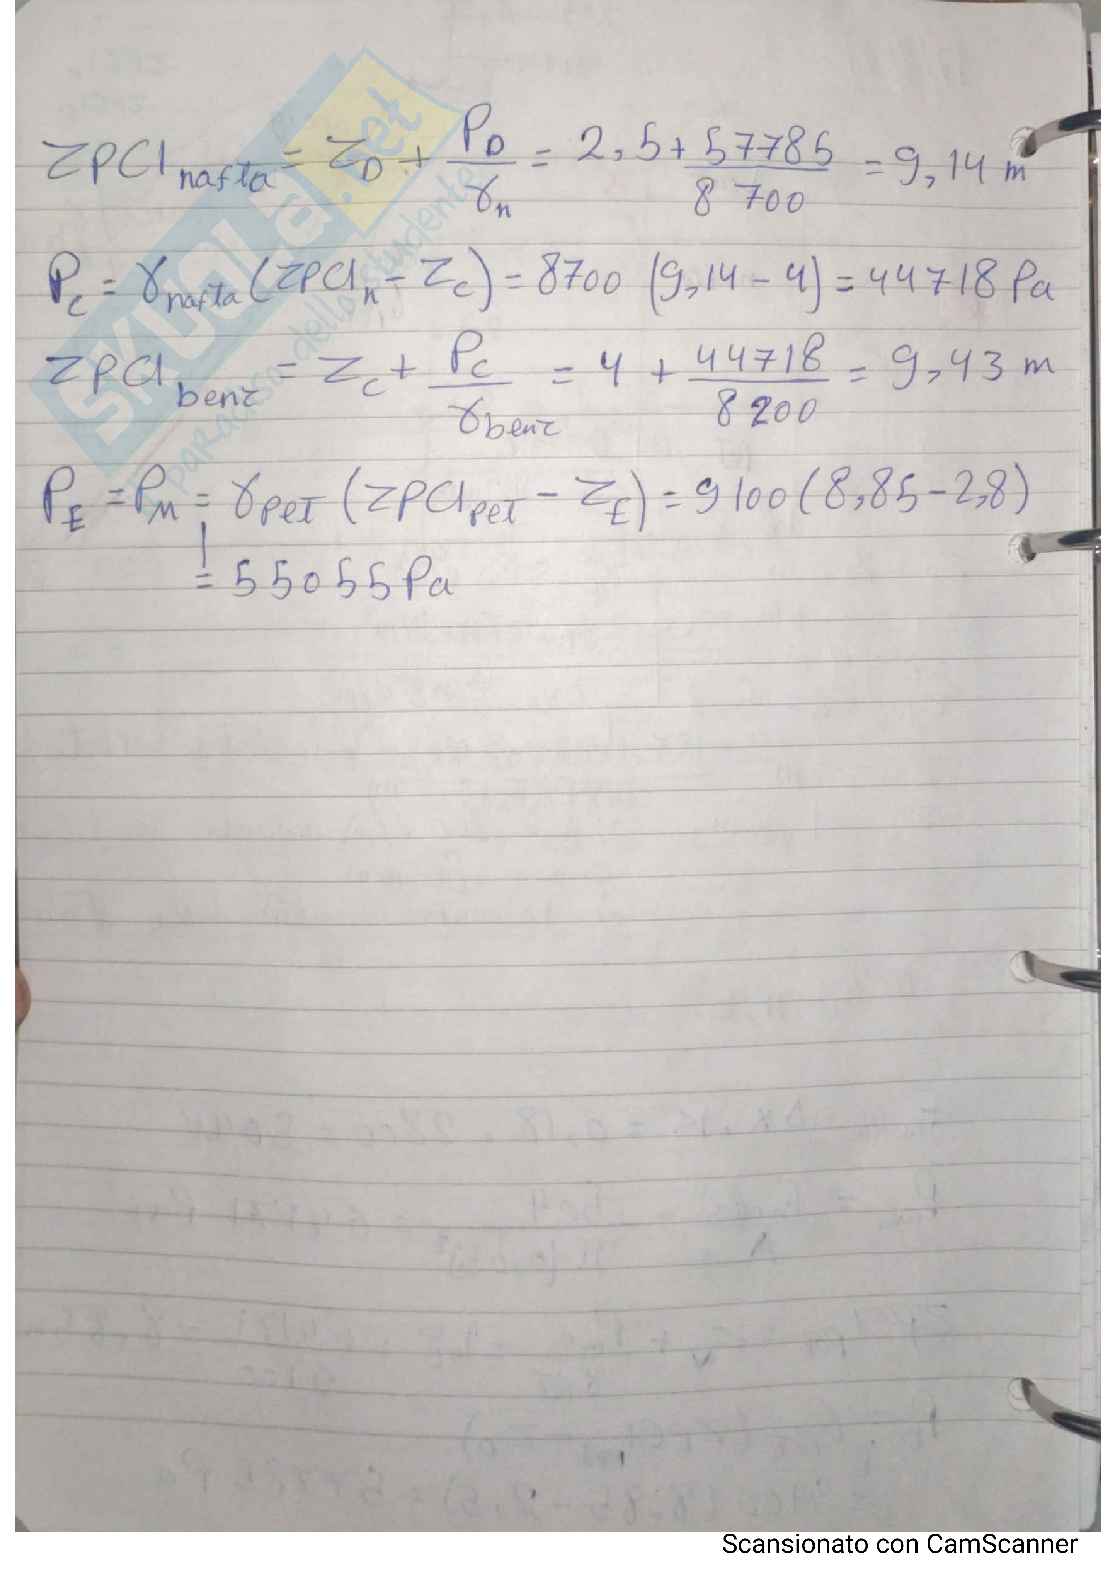 ZPCI nafta = Z_D + P_D/γ_n = 2,5 + 57785/8700 = 9,14 m
P_C = γ_nafta (ZPCI_n - Z_C) = 8700 (9,14 - 4) = 44718 Pa
ZPCI benz = Z_C + P_C/γ_benz = 4 + 44718/8200 = 9,43 m
P_E = P_M = γ_PET (ZPCI_PET - Z_E) = 9100 (8,85 - 2,8)
= 55055 Pa
SKUOLA.net
paradiso dello studente
Scansionato con CamScanner